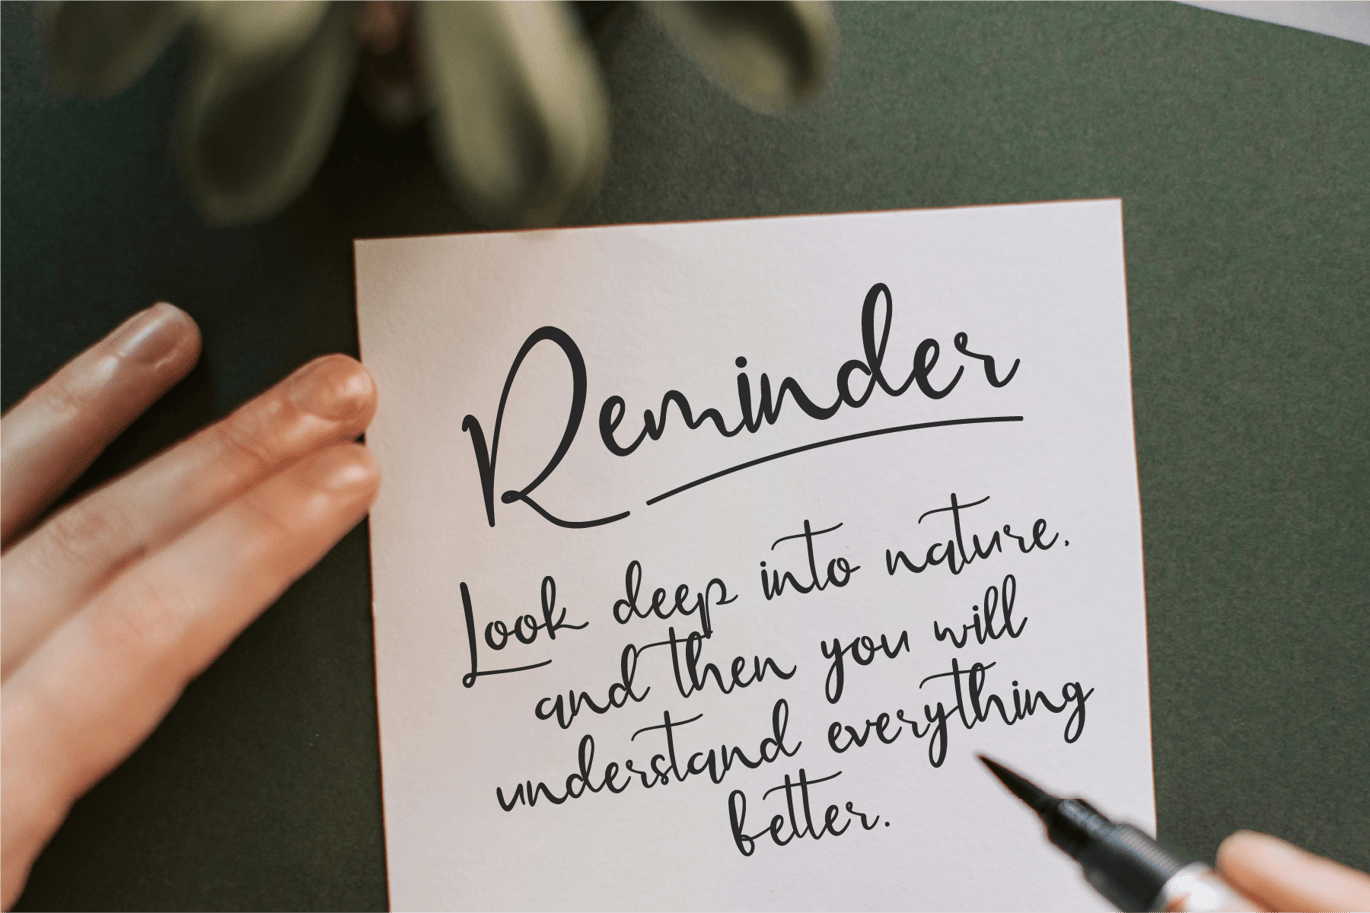 Reminder
Look deep into nature.
and then you will
understand everything
better.